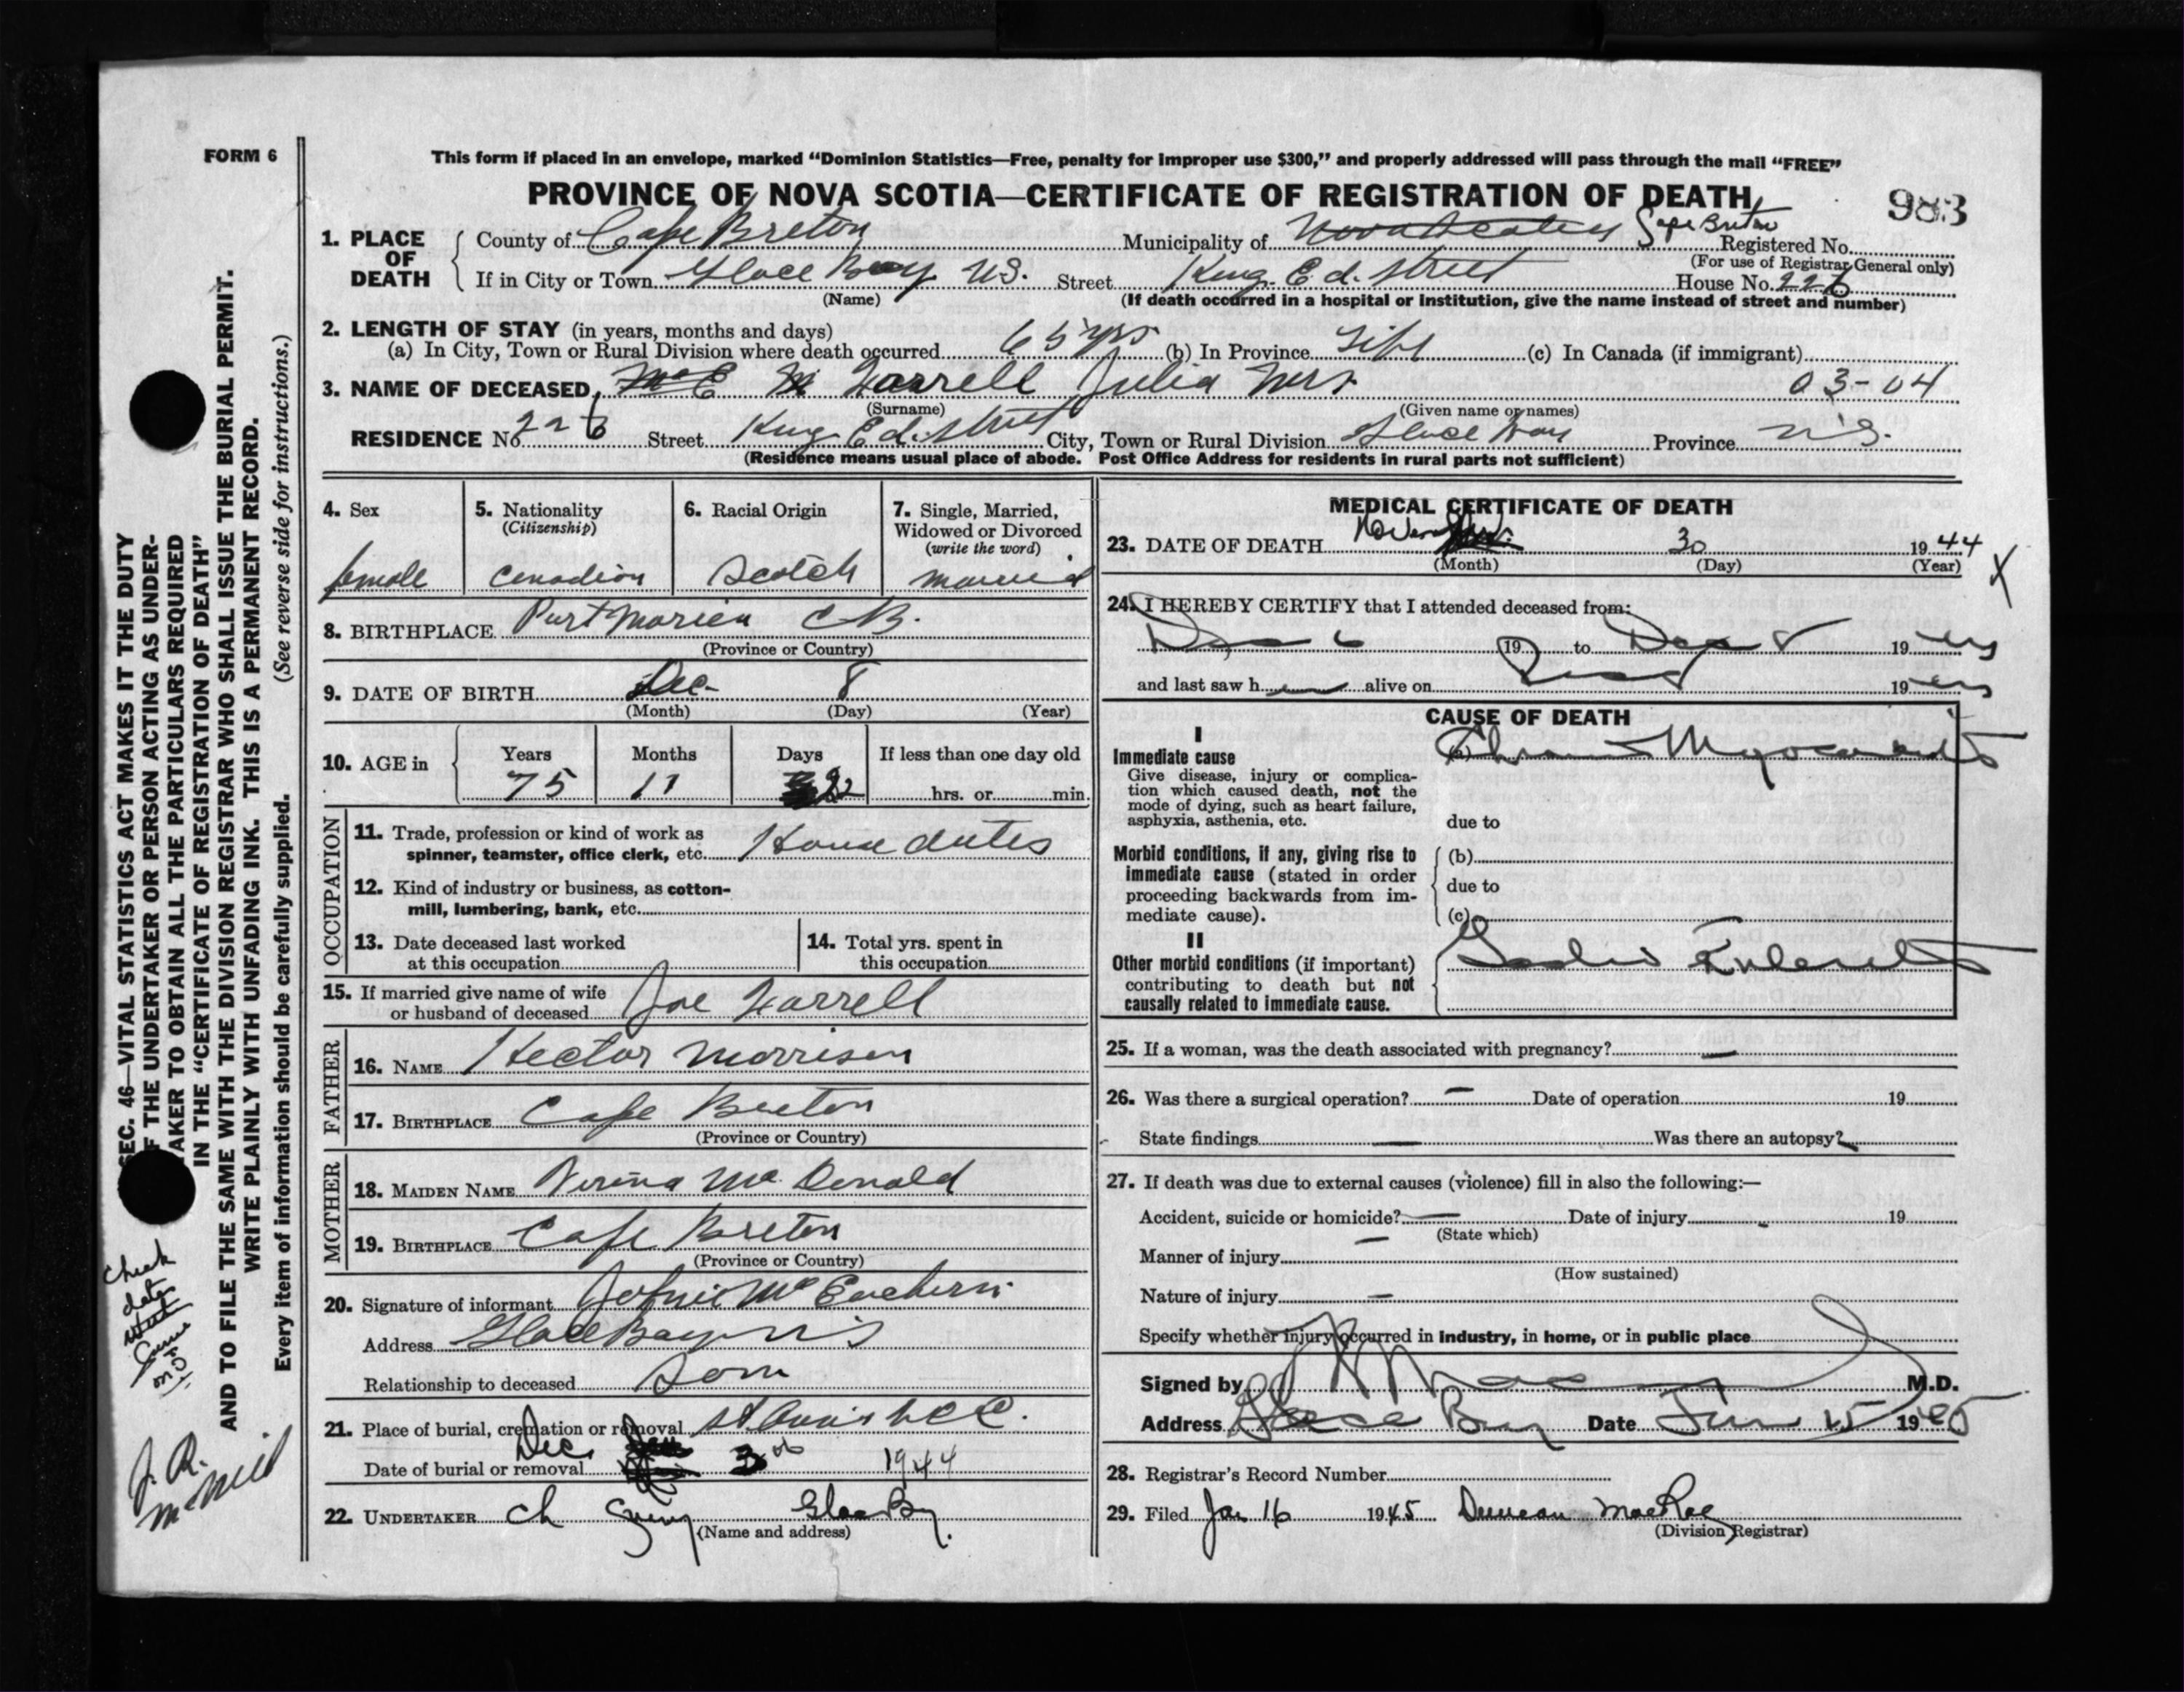 FORM 6
This form if placed in an envelope, marked "Dominion Statistics—Free, penalty for improper use $300," and properly addressed will pass through the mail "FREE"
PROVINCE OF NOVA SCOTIA—CERTIFICATE OF REGISTRATION OF DEATH
983
1. PLACE OF DEATH
County of Cape Breton Municipality of Nova Scotia Cape Breton Registered No.
(For use of Registrar General only)
If in City or Town Glace Bay N.S. Street King Ed. Street House No. 226
(Name) (If death occurred in a hospital or institution, give the name instead of street and number)
2. LENGTH OF STAY (in years, months and days)
(a) In City, Town or Rural Division where death occurred 65 yrs (b) In Province Life (c) In Canada (if immigrant)
3. NAME OF DECEASED Farrell Julia Mrs 03-04
(Surname) (Given name or names)
RESIDENCE No 226 Street King Ed. Street City, Town or Rural Division Glace Bay Province N.S.
(Residence means usual place of abode. Post Office Address for residents in rural parts not sufficient)
4. Sex
female
5. Nationality
(Citizenship)
Canadian
6. Racial Origin
Scotch
7. Single, Married,
Widowed or Divorced
(write the word)
married
8. BIRTHPLACE Port Morien C.B.
(Province or Country)
9. DATE OF BIRTH Dec. 8
(Month) (Day) (Year)
10. AGE in
Years Months Days If less than one day old
75 11 22 hrs. or min.
OCCUPATION
11. Trade, profession or kind of work as
spinner, teamster, office clerk, etc. House duties
12. Kind of industry or business, as cotton-
mill, lumbering, bank, etc.
13. Date deceased last worked
at this occupation
14. Total yrs. spent in
this occupation
15. If married give name of wife
or husband of deceased Joe Farrell
FATHER
16. NAME Hector Morrison
17. BIRTHPLACE Cape Breton
(Province or Country)
MOTHER
18. MAIDEN NAME McDonald
19. BIRTHPLACE Cape Breton
(Province or Country)
20. Signature of informant McEachern
Address Glace Bay N.S.
Relationship to deceased Son
21. Place of burial, cremation or removal
Date of burial or removal Dec. 3 1944
22. UNDERTAKER Glace Bay
(Name and address)
MEDICAL CERTIFICATE OF DEATH
23. DATE OF DEATH November 30 1944
(Month) (Day) (Year)
X
24. I HEREBY CERTIFY that I attended deceased from:
19 to 19
and last saw h alive on 19
CAUSE OF DEATH
I
Immediate cause
Give disease, injury or complica-
tion which caused death, not the
mode of dying, such as heart failure,
asphyxia, asthenia, etc.
(a) Chronic Myocarditis
due to
Morbid conditions, if any, giving rise to
immediate cause (stated in order
proceeding backwards from im-
mediate cause).
(b)
due to
(c)
II
Other morbid conditions (if important)
contributing to death but not
causally related to immediate cause.
25. If a woman, was the death associated with pregnancy? —
26. Was there a surgical operation? — Date of operation 19
State findings — Was there an autopsy?
27. If death was due to external causes (violence) fill in also the following:—
Accident, suicide or homicide? — Date of injury 19
(State which)
Manner of injury —
(How sustained)
Nature of injury —
Specify whether injury occurred in industry, in home, or in public place
Signed by M.D.
Address Glace Bay Date 15 1945
28. Registrar's Record Number
29. Filed Jan 16 1945 Duncan MacRae
(Division Registrar)
SEC. 46—VITAL STATISTICS ACT MAKES IT THE DUTY
OF THE UNDERTAKER OR PERSON ACTING AS UNDER-
TAKER TO OBTAIN ALL THE PARTICULARS REQUIRED
IN THE "CERTIFICATE OF REGISTRATION OF DEATH"
AND TO FILE THE SAME WITH THE DIVISION REGISTRAR WHO SHALL ISSUE THE BURIAL PERMIT.
WRITE PLAINLY WITH UNFADING INK. THIS IS A PERMANENT RECORD.
Every item of information should be carefully supplied. (See reverse side for instructions.)
Check
date
with
MD
J. R.
McNeil